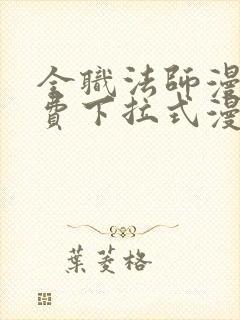 全職法師漫
費下拉式漫
葉菱格